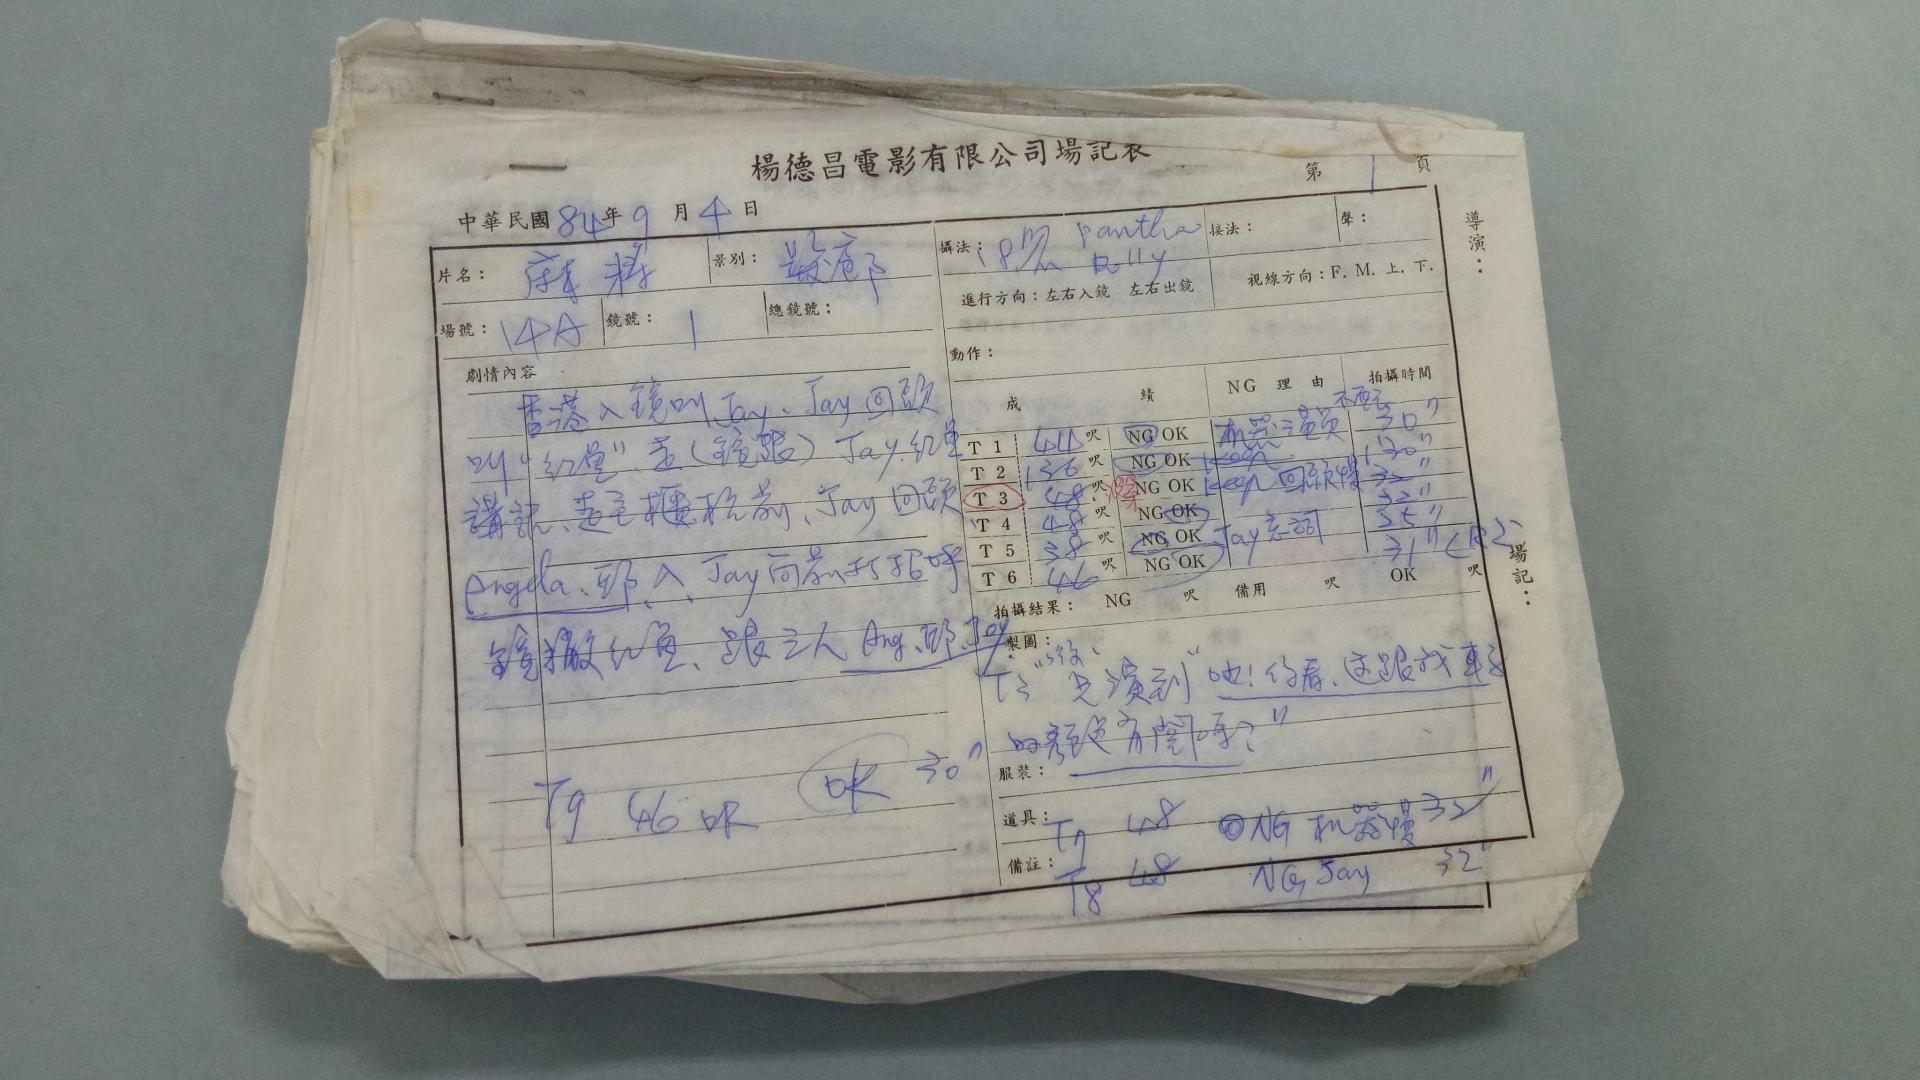 楊德昌電影有限公司場記表
第 1 頁
中華民國 84 年 9 月 4 日
片名： 麻將 景別：
場號： 14A 鏡號： 1 總鏡號：
攝法： Pantha Dolly 接法： 聲：
進行方向：左右入鏡 左右出鏡 視線方向：F. M. 上. 下.
動作：
導演：
場記：
劇情內容
香港入鏡叫 Jay、Jay 回頭
叫"紅魚"、走(鏡跟) Jay.紅魚
講話、走至櫃枱前、Jay 回頭
Angela、邱、入、Jay 向前打招呼
鏡撇紅魚、跟三人 Ang、邱、Jay
T9 46 呎 OK 30"
成 績 NG 理 由 拍攝時間
T 1 44 呎 NG OK 机器演員不配 30"
T 2 136 呎 NG OK Keep 130"
T 3 48 呎 NG OK Keep 回頭慢 32"
T 4 48 呎 NG OK 32"
T 5 38 呎 NG OK Jay 忘詞 35"
T 6 46 呎 NG OK 31"
拍攝結果： NG 呎 備用 呎 OK 呎
製圖：
T3 "吔！你看、這跟我車子
的顏色有關嗎？"
服裝：
道具： T7 48 NG 机器慢 32"
備註： T8 48 NG Jay 32"